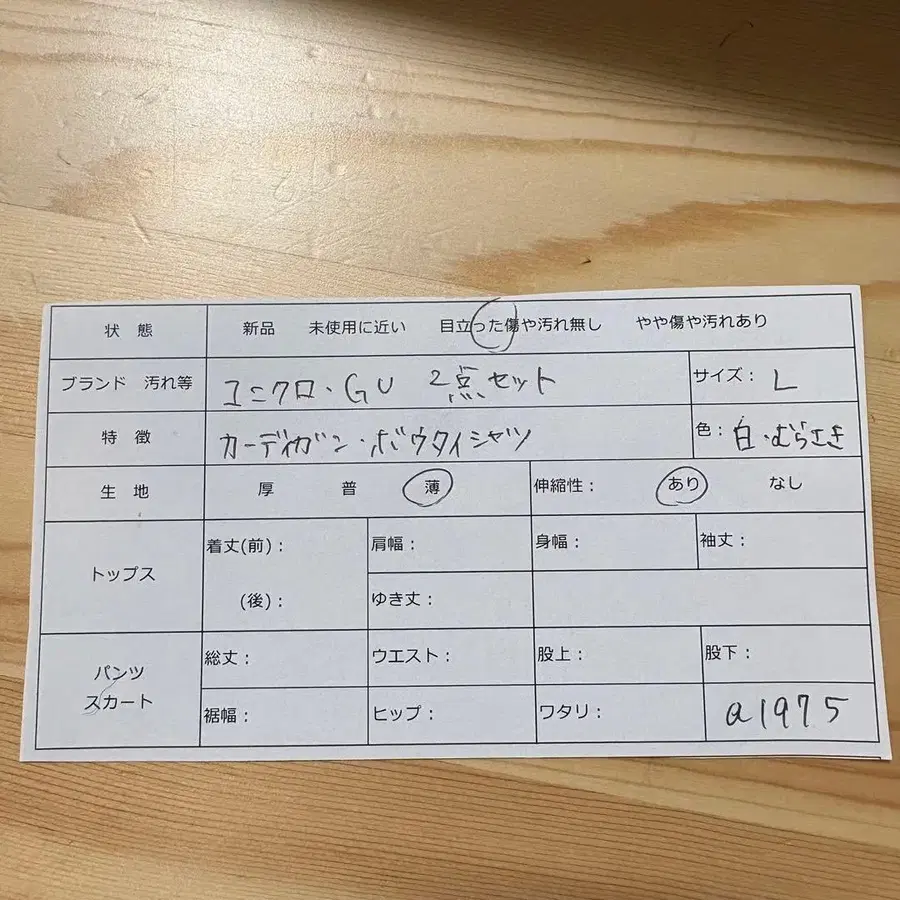 状態 新品 未使用に近い 目立った傷や汚れ無し やや傷や汚れあり
ブランド 汚れ等 ユニクロ・GU 2点セット サイズ： L
特徴 カーディガン・ボウタイシャツ 色： 白・むらさき
生地 厚 普 薄 伸縮性： あり なし
トップス 着丈(前)： 肩幅： 身幅： 袖丈：
(後)： ゆき丈：
パンツ スカート 総丈： ウエスト： 股上： 股下：
裾幅： ヒップ： ワタリ： a1975